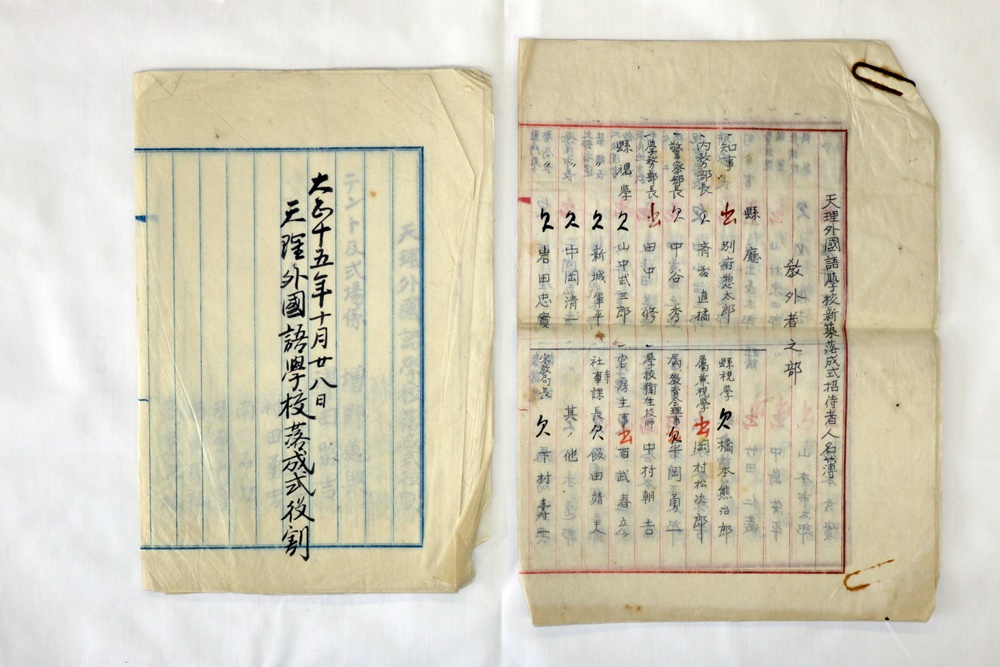 大正十五年十月廿八日
天理外國語學校落成式役割
天理外國語學校新築落成式招待者人名簿
敎外者之部
縣廳
知事 出 別府惣太郎
內務部長 欠 斉藤直橘
警察部長 欠 中谷秀
學務部長 出 田中修
縣視學 欠 山中武三郎
〃 欠 新城軍平
〃 欠 中岡清一
〃 欠 岩田忠實
縣視學 欠 橋本熊治郎
屬兼視學 出 岡村松次郎
欠 平岡勇一
學校衞生技師 中村朝吉
出 百武春立
社事課長 欠 飯田靖夫
其ノ他
宗敎局長 欠